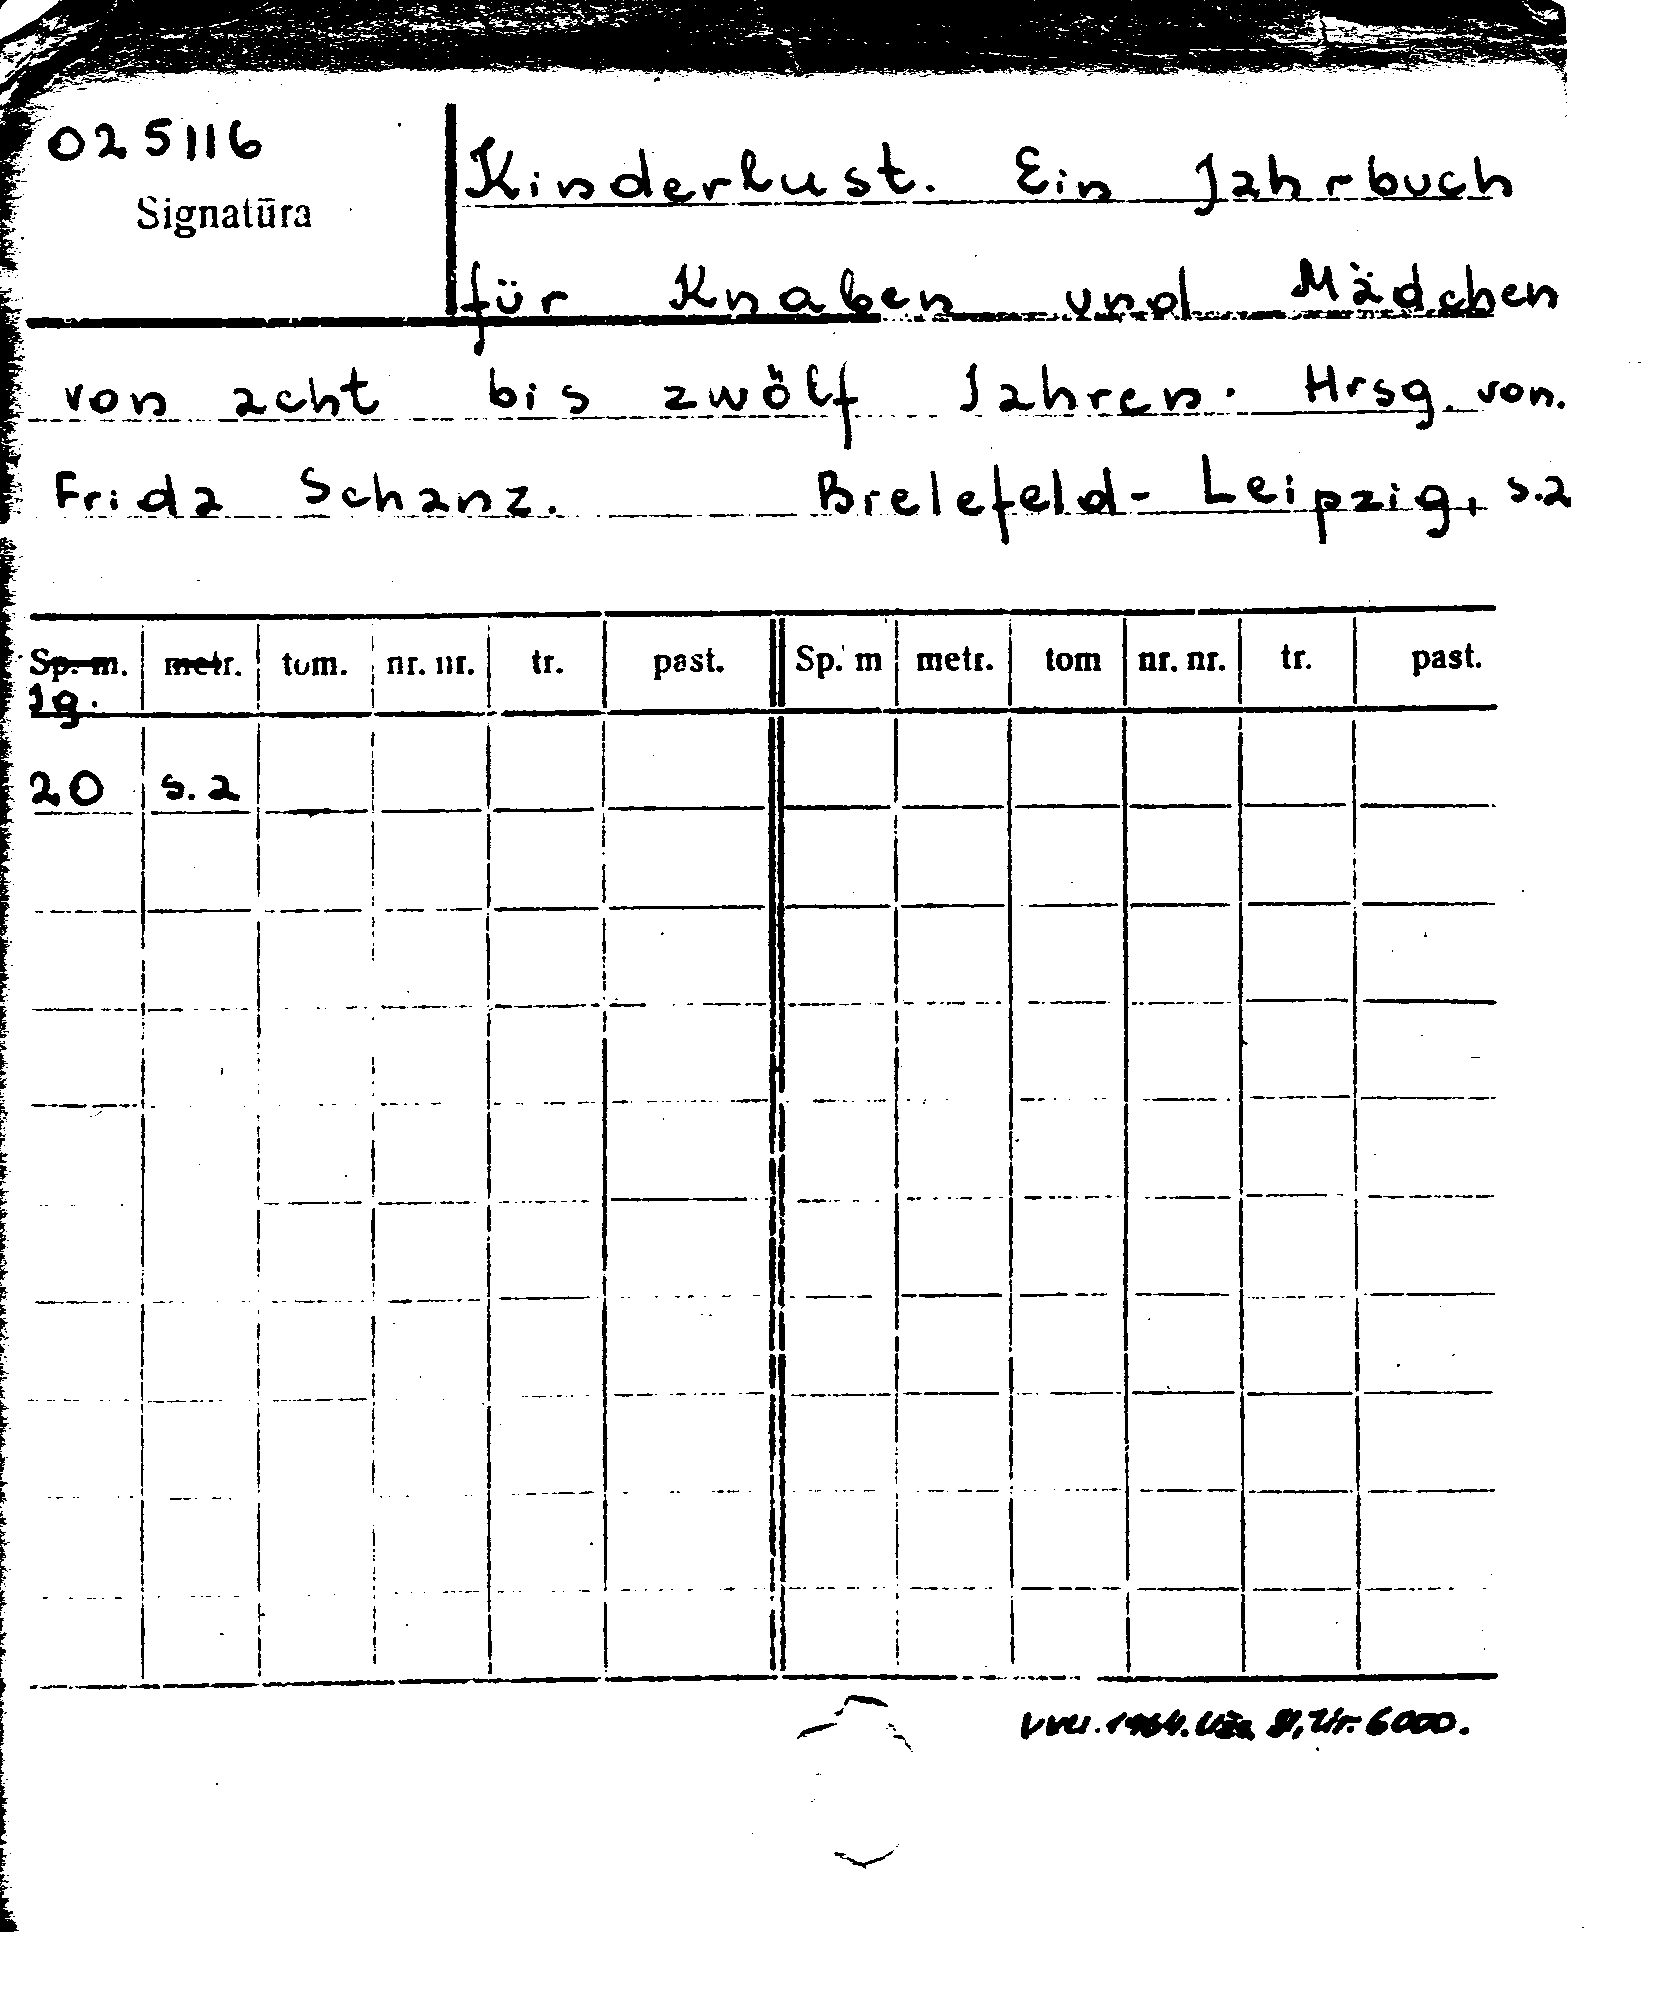 025116
Signatūra
Kinderlust. Ein Jahrbuch
für Knaben und Mädchen
von acht bis zwölf Jahren. Hrsg. von.
Frida Schanz. Brelefeld-Leipzig, s.a
Sp. m. metr. tom. nr. nr. tr. past. Sp. m metr. tom nr. nr. tr. past.
Jg.
20 s.a
VVU. 1964. Tir. 6000.